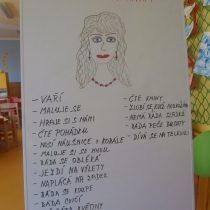 - VAŘÍ
- MALUJE SE
- HRAJE SI S NÁMI
- ČTE POHÁDKU
- NOSÍ NÁUŠNICE + KORÁLE
- MALUJE SI
- RÁDA SE OBLÉKÁ
- JEZDÍ NA VÝLETY
- NAPLÁCÁ NA ZADEK
- RÁDA SE KOUPE
- RÁDA CVIČÍ
KVĚTINY
- ČTE KNIHY
- ZLOBÍ SE, KDYŽ
- NEMÁ RÁDA
- RÁDA PEČE
- DÍVÁ SE NA TELEVIZI